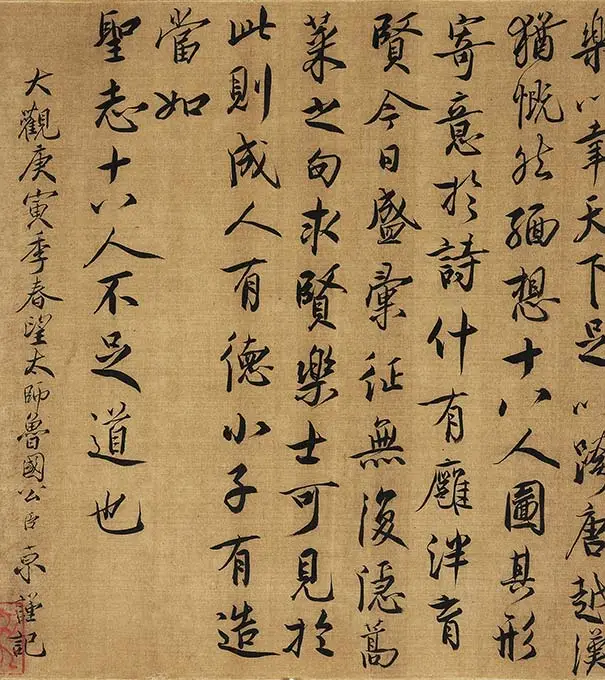 樂以天下足以跨唐越漢
猶慨然緬想十八人圖其形
寄意於詩什有廱泮育
賢今日盛彙征無復隱蒿
萊之句求賢樂士可見於
此則成人有德小子有造
當如
聖志十八人不足道也
大觀庚寅季春望太師魯國公臣京謹記